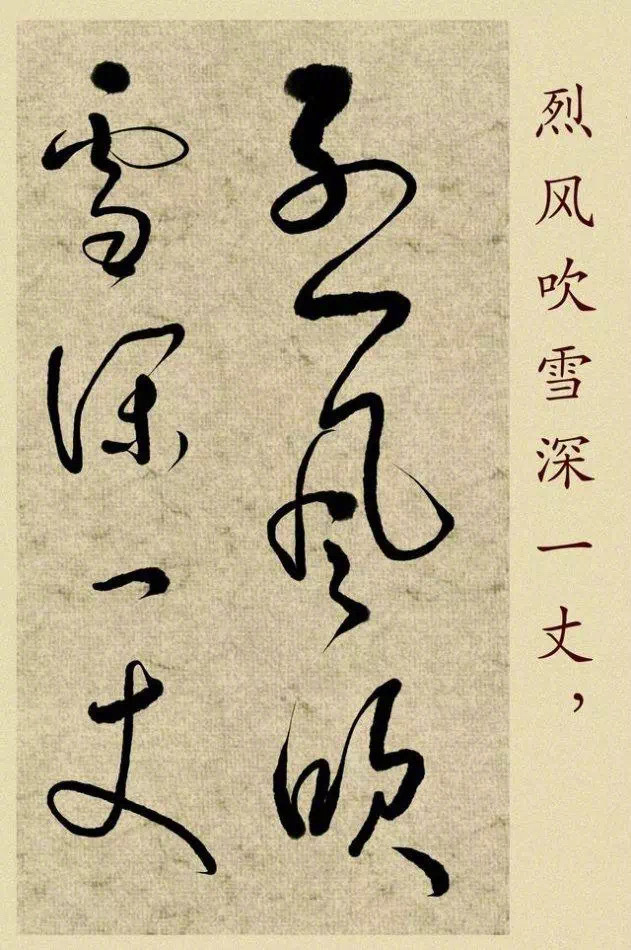 烈风吹雪深一丈，
烈风吹
雪深一丈